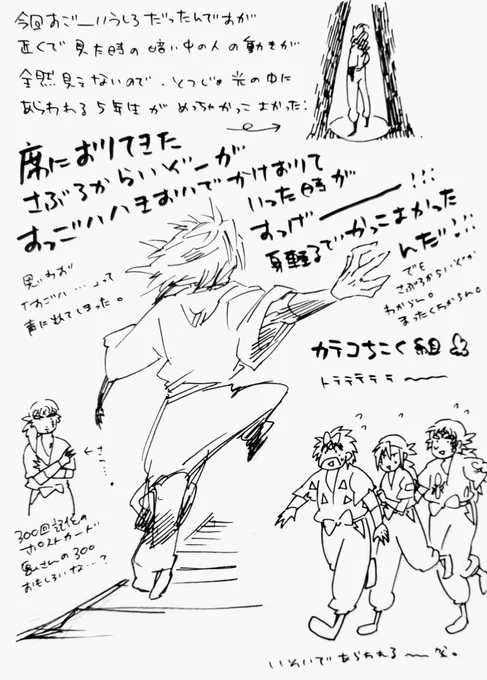 今回すごーいうしろだったんですが
近くで見た時の暗い中の人の動きが
全然見えないので、とつじょ光の中に
あらわれる5年生がめっちゃかっこよかった!
席におりてきた
さぶろからいぞーが
すっごいいきおいでかけおりて
いった時が
すっげー!!!
身軽でかっこよかった
んだ!!!
思わず
声に出てしまった。
でも
さぶろからいぞーか
わからん。
まったくわからん。
カテコちこく組
トテテテテテ〜
300回記念の
ポストカード
奥さんの300
おもしろいな…?
いそいであらわれる〜笑。